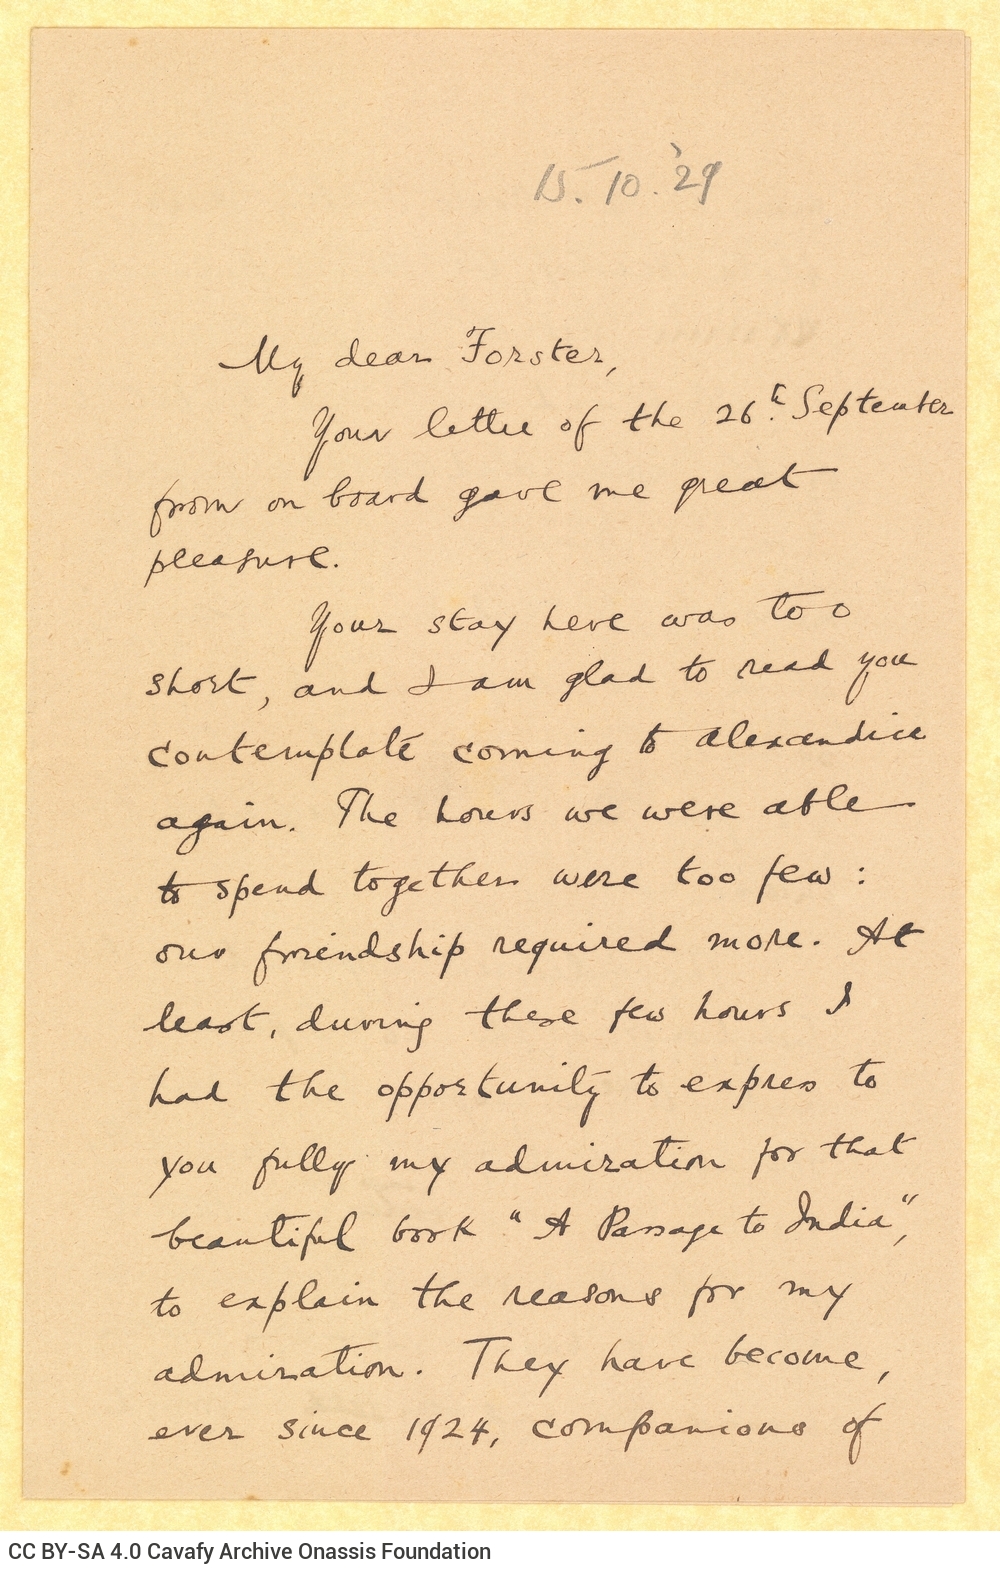 15. 10. '29
My dear Forster,
Your letter of the 26th. September
from on board gave me great
pleasure.
Your stay here was too
short, and I am glad to read you
contemplate coming to Alexandria
again. The hours we were able
to spend together were too few:
our friendship required more. At
least, during these few hours I
had the opportunity to express to
you fully my admiration for that
beautiful book "A Passage to India",
to explain the reasons for my
admiration. They have become,
ever since 1924, companions of
CC BY-SA 4.0 Cavafy Archive Onassis Foundation